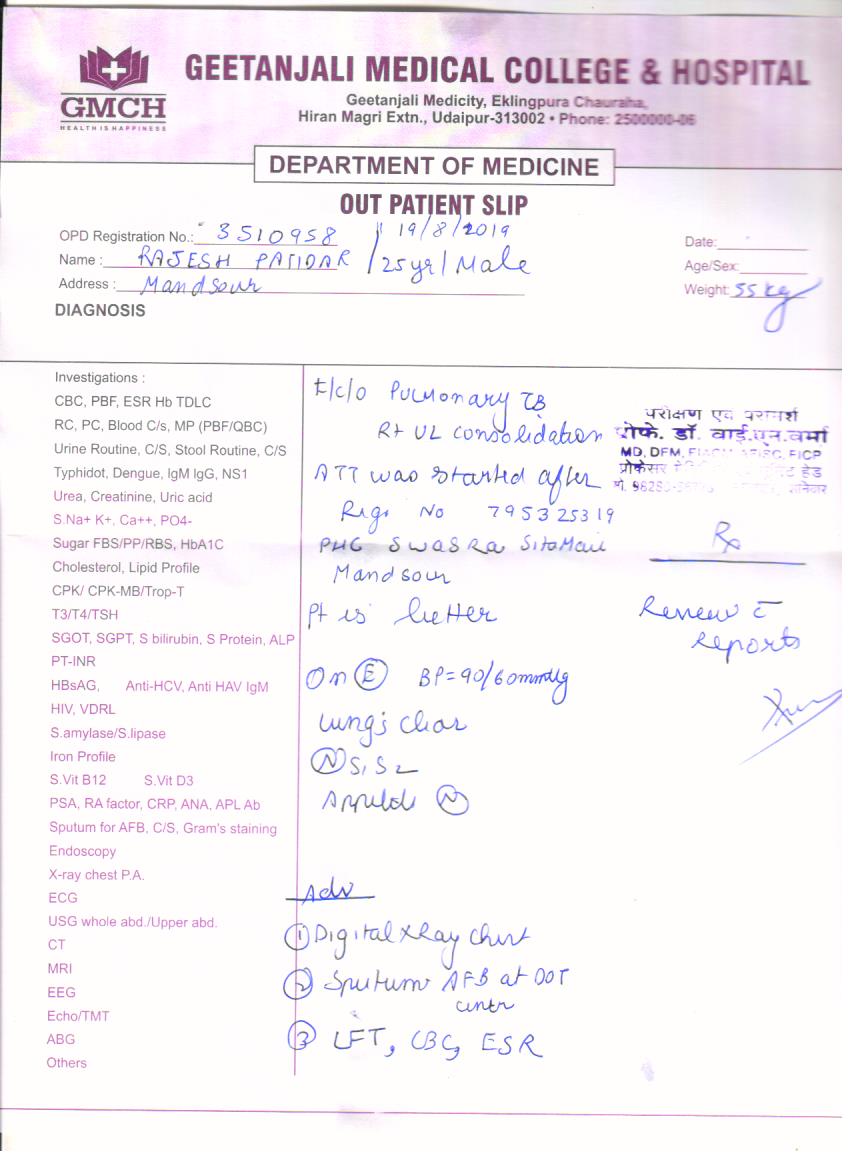 GMCH
HEALTH IS HAPPINESS
GEETANJALI MEDICAL COLLEGE & HOSPITAL
Geetanjali Medicity, Eklingpura Chauraha,
Hiran Magri Extn., Udaipur-313002 • Phone: 2500000-06
DEPARTMENT OF MEDICINE
OUT PATIENT SLIP
OPD Registration No.: 3510958 19/8/2019
Date:
Name : RAJESH PATIDAR / 25 yr / Male
Age/Sex:
Address : Mandsour
Weight: 55 kg
DIAGNOSIS
Investigations :
CBC, PBF, ESR Hb TDLC
RC, PC, Blood C/s, MP (PBF/QBC)
Urine Routine, C/S, Stool Routine, C/S
Typhidot, Dengue, IgM IgG, NS1
Urea, Creatinine, Uric acid
S.Na+ K+, Ca++, PO4-
Sugar FBS/PP/RBS, HbA1C
Cholesterol, Lipid Profile
CPK/ CPK-MB/Trop-T
T3/T4/TSH
SGOT, SGPT, S bilirubin, S Protein, ALP
PT-INR
HBsAG, Anti-HCV, Anti HAV IgM
HIV, VDRL
S.amylase/S.lipase
Iron Profile
S.Vit B12 S.Vit D3
PSA, RA factor, CRP, ANA, APL Ab
Sputum for AFB, C/S, Gram's staining
Endoscopy
X-ray chest P.A.
ECG
USG whole abd./Upper abd.
CT
MRI
EEG
Echo/TMT
ABG
Others
F/c/o Pulmonary TB
Rt UL consolidation
ATT was started after
Regs No 795325319
PHC SWASRA SitaMau
Mandsour
Pt is better
On (E) BP = 90/60 mmHg
Lungs clear
(N) S1 S2
(N)
Adv
(1) Digital X Ray Chest
(2) Sputum AFB at DOT
centr
(3) LFT, CBC, ESR
परीक्षण एवं परामर्श
प्रोफे. डॉ. वाई.एन.वर्मा
MD, DFM, FICP
प्रोफेसर हेड
Rx
Review c̄
reports